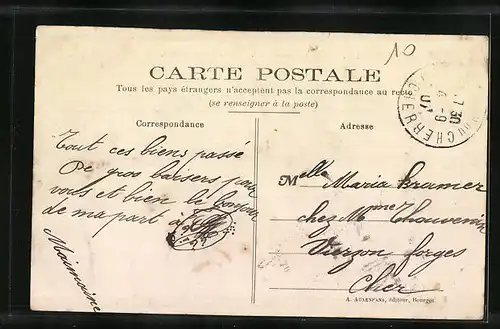 10
CARTE POSTALE
Tous les pays étrangers n'acceptent pas la correspondance au recto
(se renseigner à la poste)
Correspondance
Tout ces biens passé
De gros baisers pour
vous et bien le bonjour
de ma part à
Adresse
Melle Maria Brumer
chez Mme Thauvenin
Vierzon forges
Cher
A. AUXENFANS, éditeur, Bourges